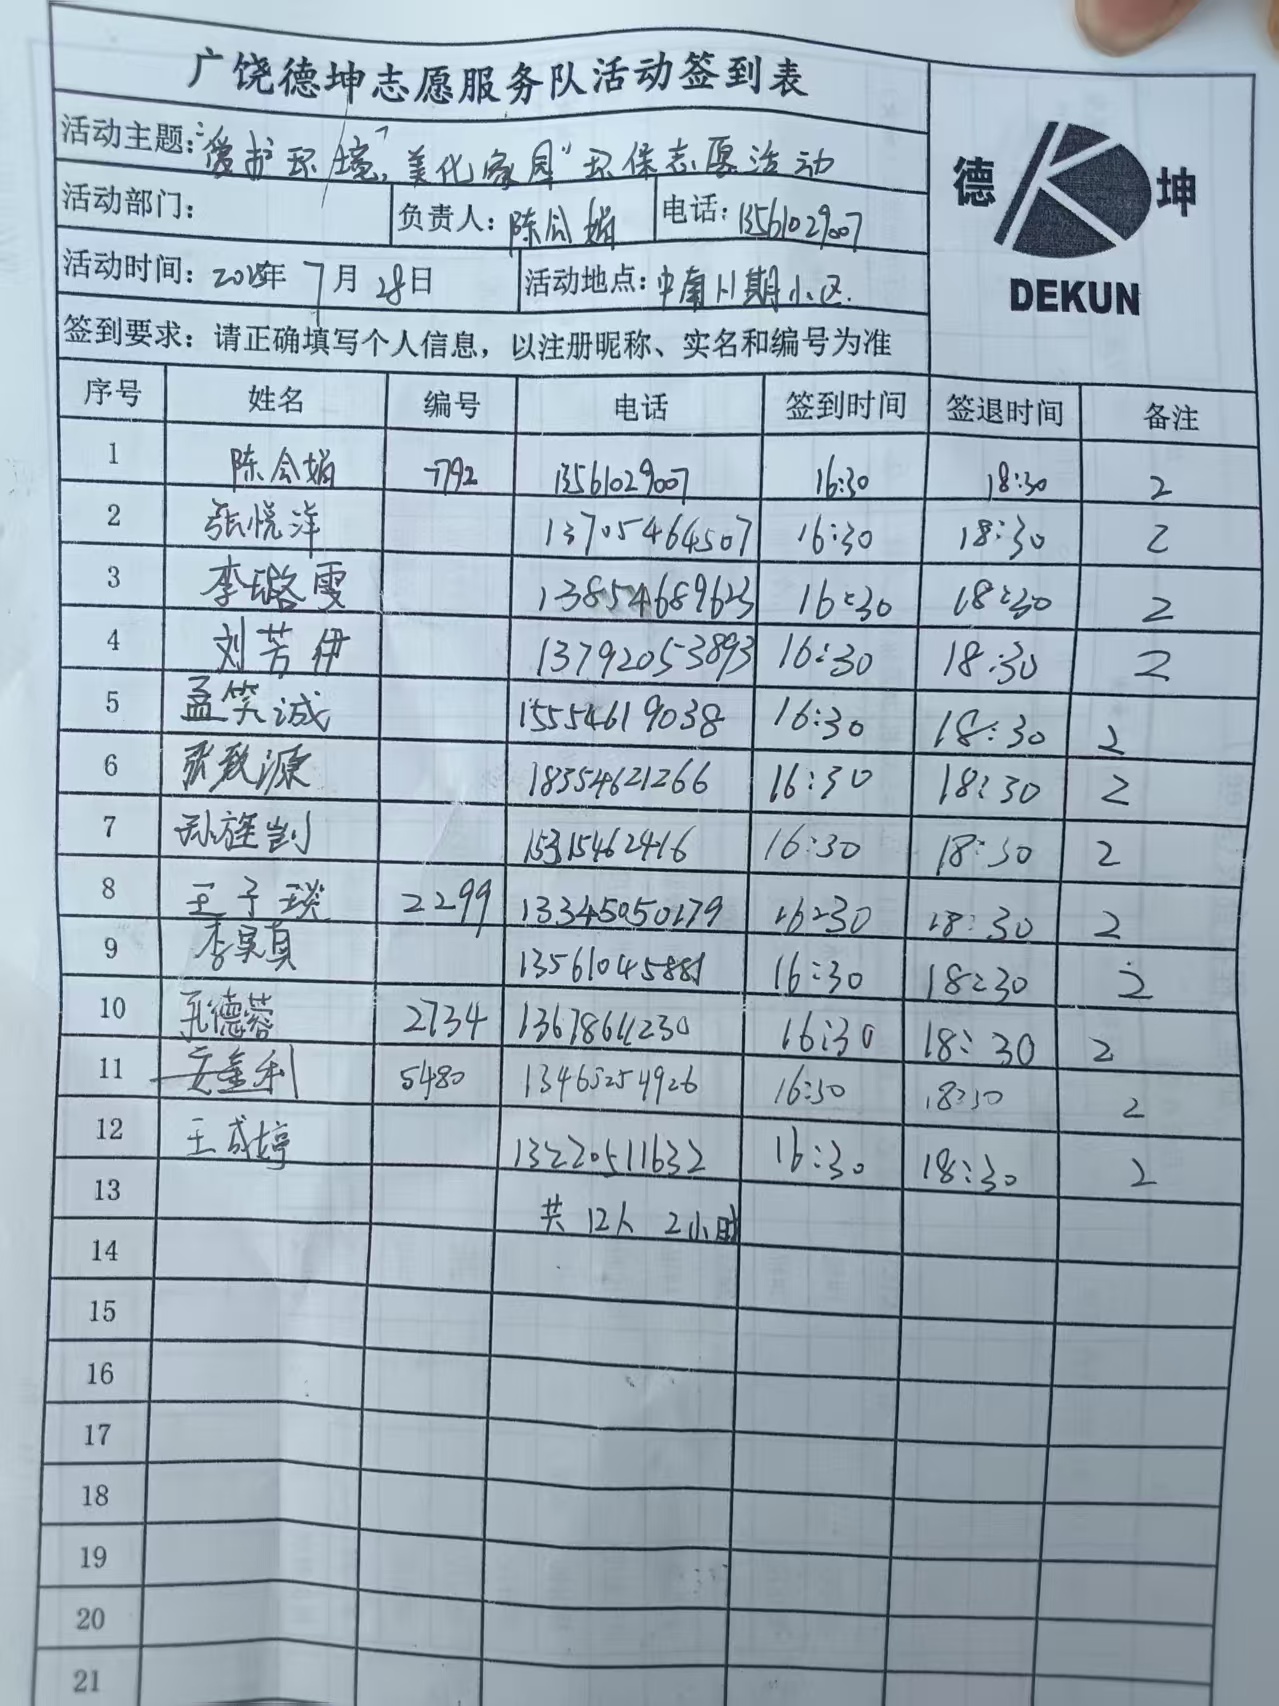 广饶德坤志愿服务队活动签到表
德 坤
DEKUN
活动主题：“爱护环境，美化家园”环保志愿活动
活动部门： 负责人：陈会娟 电话：13561029007
活动时间： 年 7月28日 活动地点：中南 期小区.
签到要求：请正确填写个人信息，以注册昵称、实名和编号为准
序号 姓名 编号 电话 签到时间 签退时间 备注
1 陈会娟 7792 13561029007 16:30 18:30 2
2 张悦洋 13705464507 16:30 18:30 2
3 李璐雯 13854689623 16:30 18:30 2
4 刘芳伊 13792053893 16:30 18:30 2
5 孟笑诚 15554619038 16:30 18:30 2
6 张致源 18354621266 16:30 18:30 2
7 15315462416 16:30 18:30 2
8 王子琰 2299 13345050179 16:30 18:30 2
9 李昊真 13561045881 16:30 18:30 2
10 2734 16:30 18:30 2
11 5480 13465254926 16:30 18:30 2
12 王成婷 13220511632 16:30 18:30 2
13 共12人 2小时
14
15
16
17
18
19
20
21